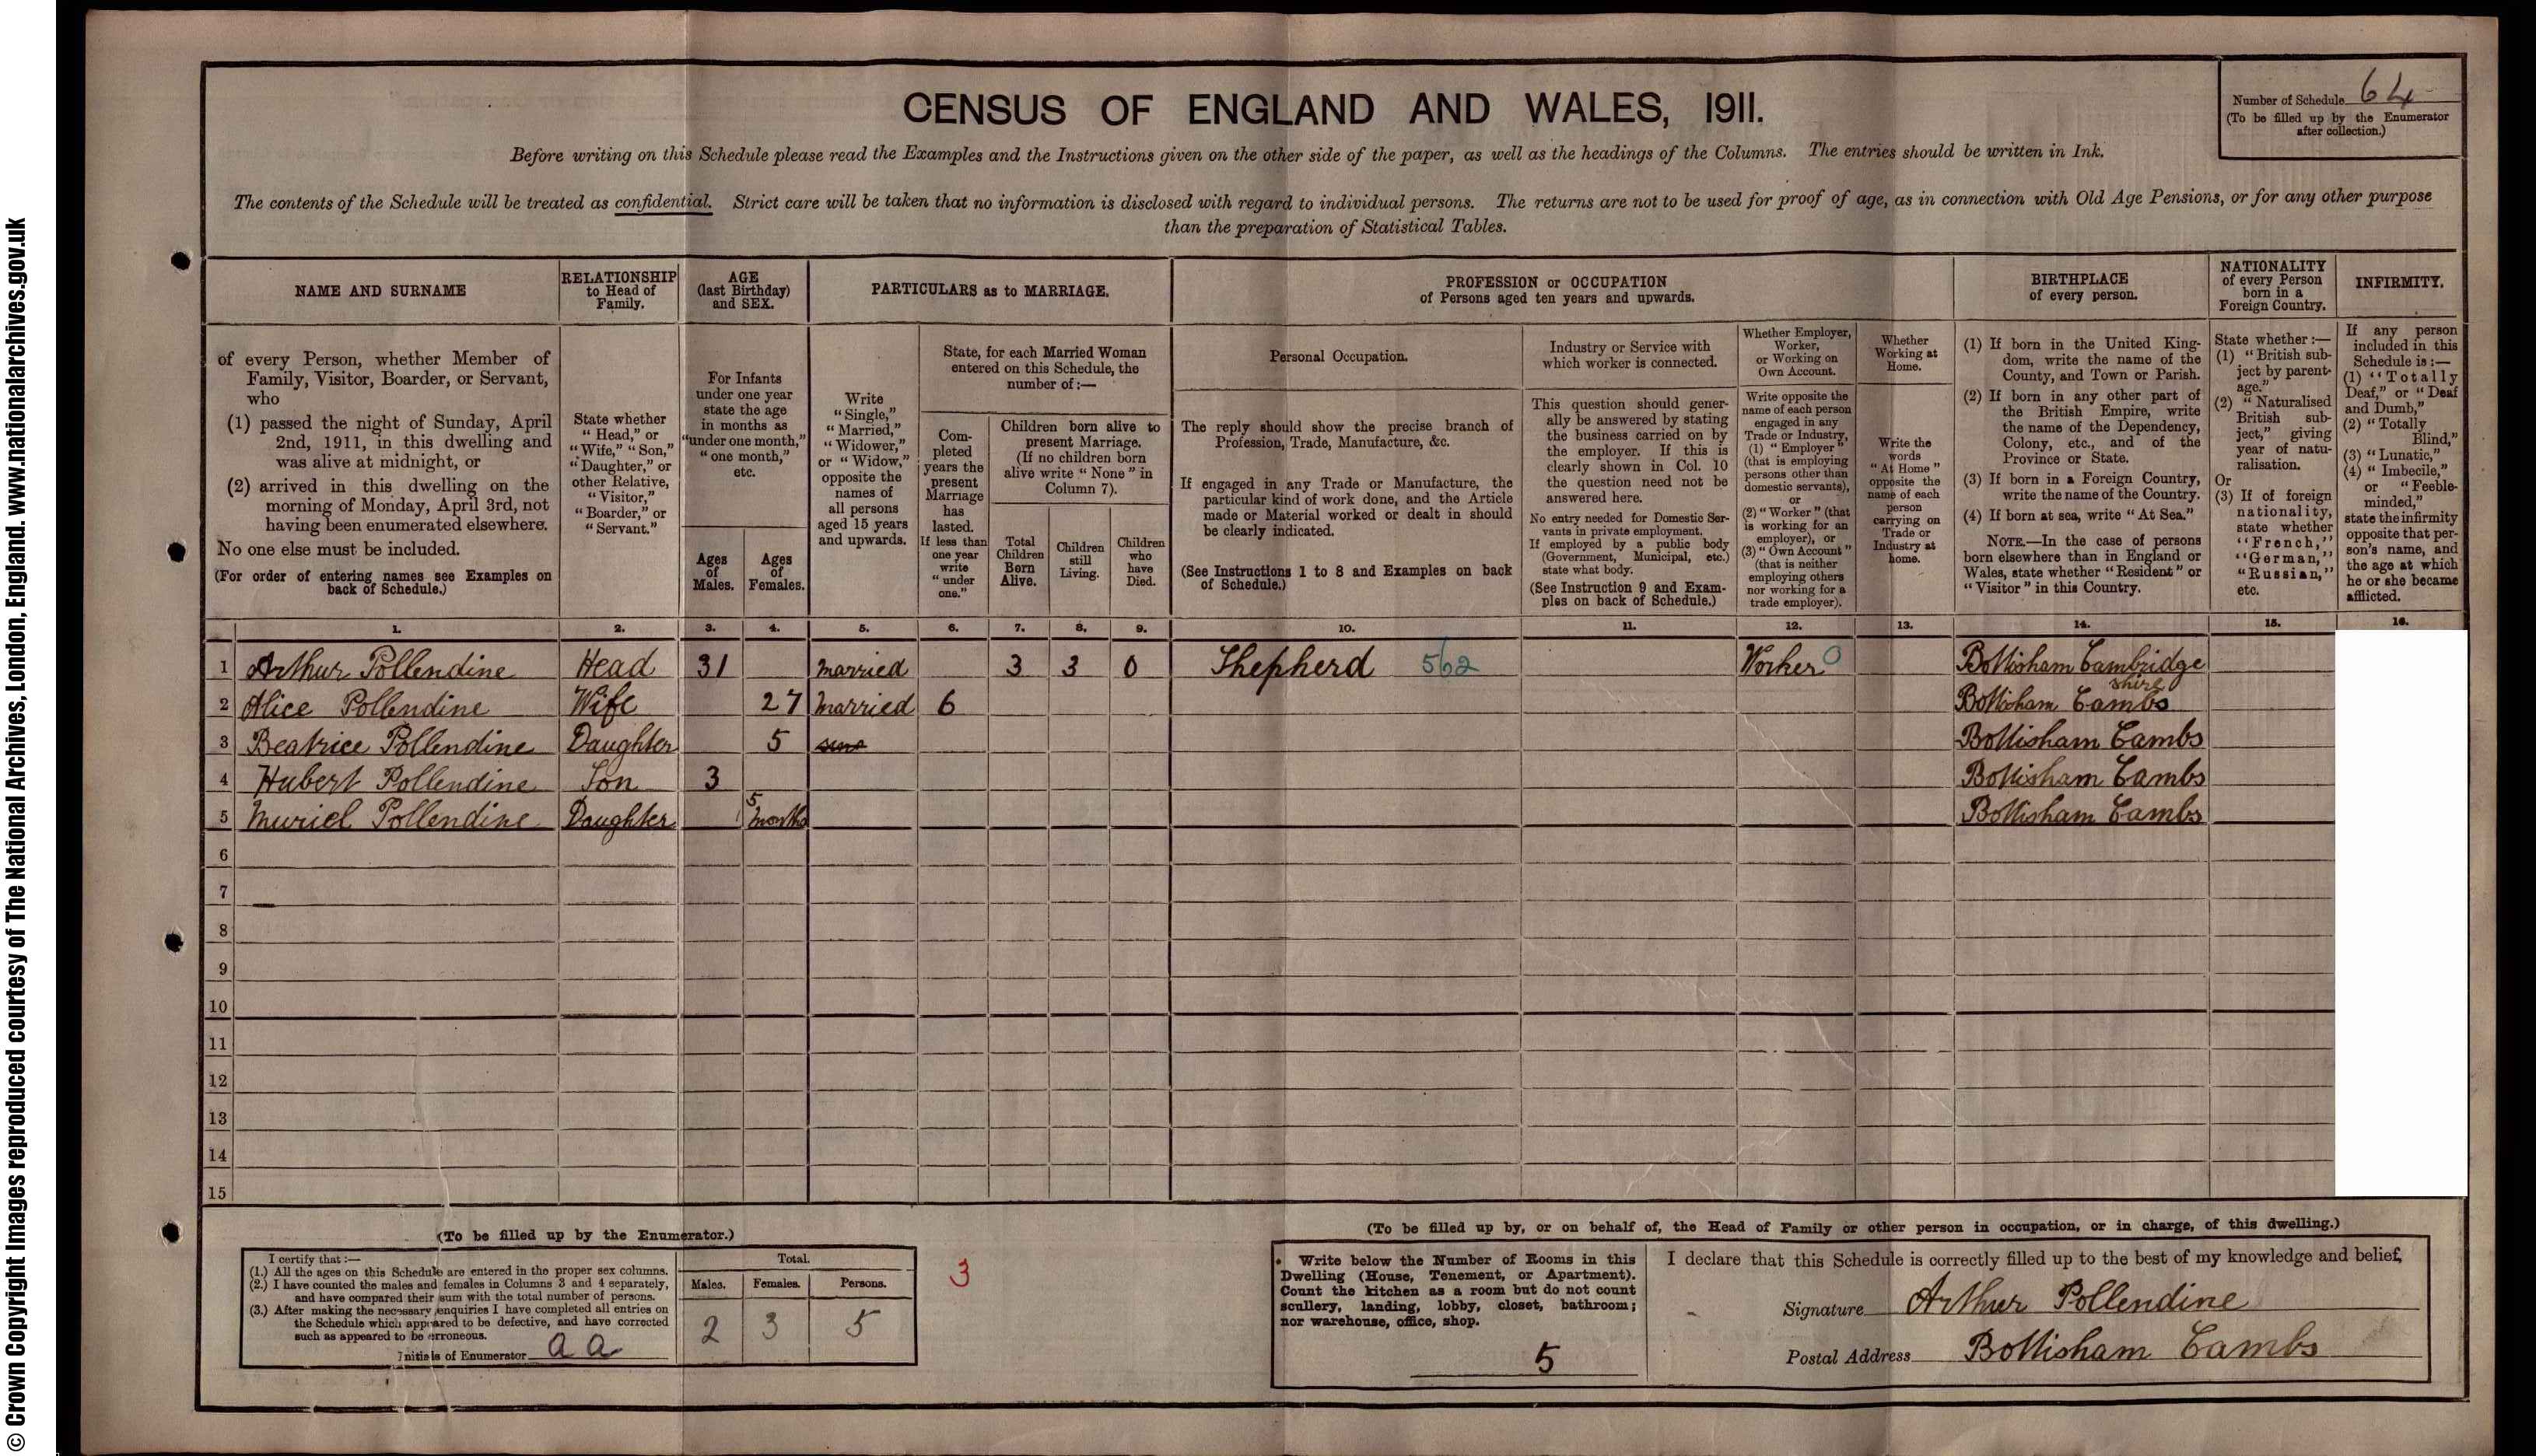 © Crown Copyright Images reproduced courtesy of The National Archives, London, England. www.nationalarchives.gov.uk
CENSUS OF ENGLAND AND WALES, 1911.
Number of Schedule 64
(To be filled up by the Enumerator
after collection.)
Before writing on this Schedule please read the Examples and the Instructions given on the other side of the paper, as well as the headings of the Columns. The entries should be written in Ink.
The contents of the Schedule will be treated as confidential. Strict care will be taken that no information is disclosed with regard to individual persons. The returns are not to be used for proof of age, as in connection with Old Age Pensions, or for any other purpose
than the preparation of Statistical Tables.
NAME AND SURNAME
of every Person, whether Member of
Family, Visitor, Boarder, or Servant,
who
(1) passed the night of Sunday, April
2nd, 1911, in this dwelling and
was alive at midnight, or
(2) arrived in this dwelling on the
morning of Monday, April 3rd, not
having been enumerated elsewhere.
No one else must be included.
(For order of entering names see Examples on
back of Schedule.)
RELATIONSHIP
to Head of
Family.
State whether
"Head," or
"Wife," "Son,"
"Daughter," or
other Relative,
"Visitor,"
"Boarder," or
"Servant."
AGE
(last Birthday)
and SEX.
For Infants
under one year
state the age
in months as
"under one month,"
"one month,"
etc.
Ages
of
Males.
Ages
of
Females.
PARTICULARS as to MARRIAGE.
Write
"Single,"
"Married,"
"Widower,"
or "Widow,"
opposite the
names of
all persons
aged 15 years
and upwards.
State, for each Married Woman
entered on this Schedule, the
number of:—
Com-
pleted
years the
present
Marriage
has
lasted.
If less than
one year
write
"under
one."
Children born alive to
present Marriage.
(If no children born
alive write "None" in
Column 7).
Total
Children
Born
Alive.
Children
still
Living.
Children
who
have
Died.
PROFESSION or OCCUPATION
of Persons aged ten years and upwards.
Personal Occupation.
The reply should show the precise branch of
Profession, Trade, Manufacture, &c.
If engaged in any Trade or Manufacture, the
particular kind of work done, and the Article
made or Material worked or dealt in should
be clearly indicated.
(See Instructions 1 to 8 and Examples on back
of Schedule.)
Industry or Service with
which worker is connected.
This question should gener-
ally be answered by stating
the business carried on by
the employer. If this is
clearly shown in Col. 10
the question need not be
answered here.
No entry needed for Domestic Ser-
vants in private employment.
If employed by a public body
(Government, Municipal, etc.)
state what body.
(See Instruction 9 and Exam-
ples on back of Schedule.)
Whether Employer,
Worker,
or Working on
Own Account.
Write opposite the
name of each person
engaged in any
Trade or Industry,
(1) "Employer"
(that is employing
persons other than
domestic servants),
or
(2) "Worker" (that
is working for an
employer), or
(3) "Own Account"
(that is neither
employing others
nor working for a
trade employer).
Whether
Working at
Home.
Write the
words
"At Home"
opposite the
name of each
person
carrying on
Trade or
Industry at
home.
BIRTHPLACE
of every person.
(1) If born in the United King-
dom, write the name of the
County, and Town or Parish.
(2) If born in any other part of
the British Empire, write
the name of the Dependency,
Colony, etc., and of the
Province or State.
(3) If born in a Foreign Country,
write the name of the Country.
(4) If born at sea, write "At Sea."
NOTE.—In the case of persons
born elsewhere than in England or
Wales, state whether "Resident" or
"Visitor" in this Country.
NATIONALITY
of every Person
born in a
Foreign Country.
State whether:—
(1) "British sub-
ject by parent-
age."
(2) "Naturalised
British sub-
ject," giving
year of natu-
ralisation.
Or
(3) If of foreign
nationality,
state whether
"French,"
"German,"
"Russian,"
etc.
INFIRMITY.
If any person
included in this
Schedule is:—
(1) "Totally
Deaf," or "Deaf
and Dumb,"
(2) "Totally
Blind,"
(3) "Lunatic,"
(4) "Imbecile,"
or "Feeble-
minded,"
state the infirmity
opposite that per-
son's name, and
the age at which
he or she became
afflicted.
1. 2. 3. 4. 5. 6. 7. 8. 9. 10. 11. 12. 13. 14. 15. 16.
1 Arthur Pollendine Head 31 Married 3 3 0 Shepherd 562 Worker 0 Bottisham Cambridge
shire
2 Alice Pollendine Wife 27 Married 6 Bottisham Cambs
3 Beatrice Pollendine Daughter 5 Bottisham Cambs
4 Hubert Pollendine Son 3 Bottisham Cambs
5 Muriel Pollendine Daughter 5 Months Bottisham Cambs
6
7
8
9
10
11
12
13
14
15
(To be filled up by the Enumerator.)
I certify that:—
(1.) All the ages on this Schedule are entered in the proper sex columns.
(2.) I have counted the males and females in Columns 3 and 4 separately,
and have compared their sum with the total number of persons.
(3.) After making the necessary enquiries I have completed all entries on
the Schedule which appeared to be defective, and have corrected
such as appeared to be erroneous.
Initials of Enumerator A A
Total.
Males. Females. Persons.
2 3 5
3
(To be filled up by, or on behalf of, the Head of Family or other person in occupation, or in charge, of this dwelling.)
Write below the Number of Rooms in this
Dwelling (House, Tenement, or Apartment).
Count the kitchen as a room but do not count
scullery, landing, lobby, closet, bathroom;
nor warehouse, office, shop.
5
I declare that this Schedule is correctly filled up to the best of my knowledge and belief.
Signature Arthur Pollendine
Postal Address Bottisham Cambs